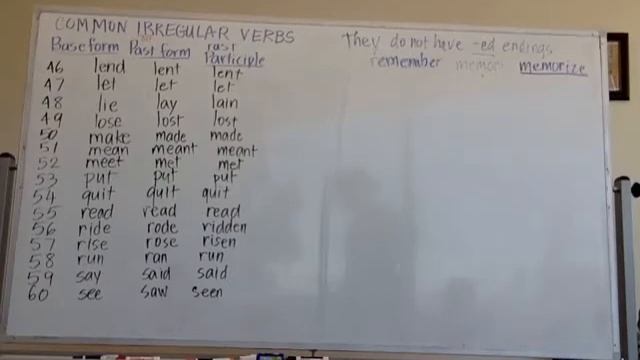 COMMON IRREGULAR VERBS
Base form Past form Past Participle
46 lend lent lent
47 let let let
48 lie lay lain
49 lose lost lost
50 make made made
51 mean meant meant
52 meet met met
53 put put put
54 quit quit quit
55 read read read
56 ride rode ridden
57 rise rose risen
58 run ran run
59 say said said
60 see saw seen
They do not have -ed endings
remember memorize